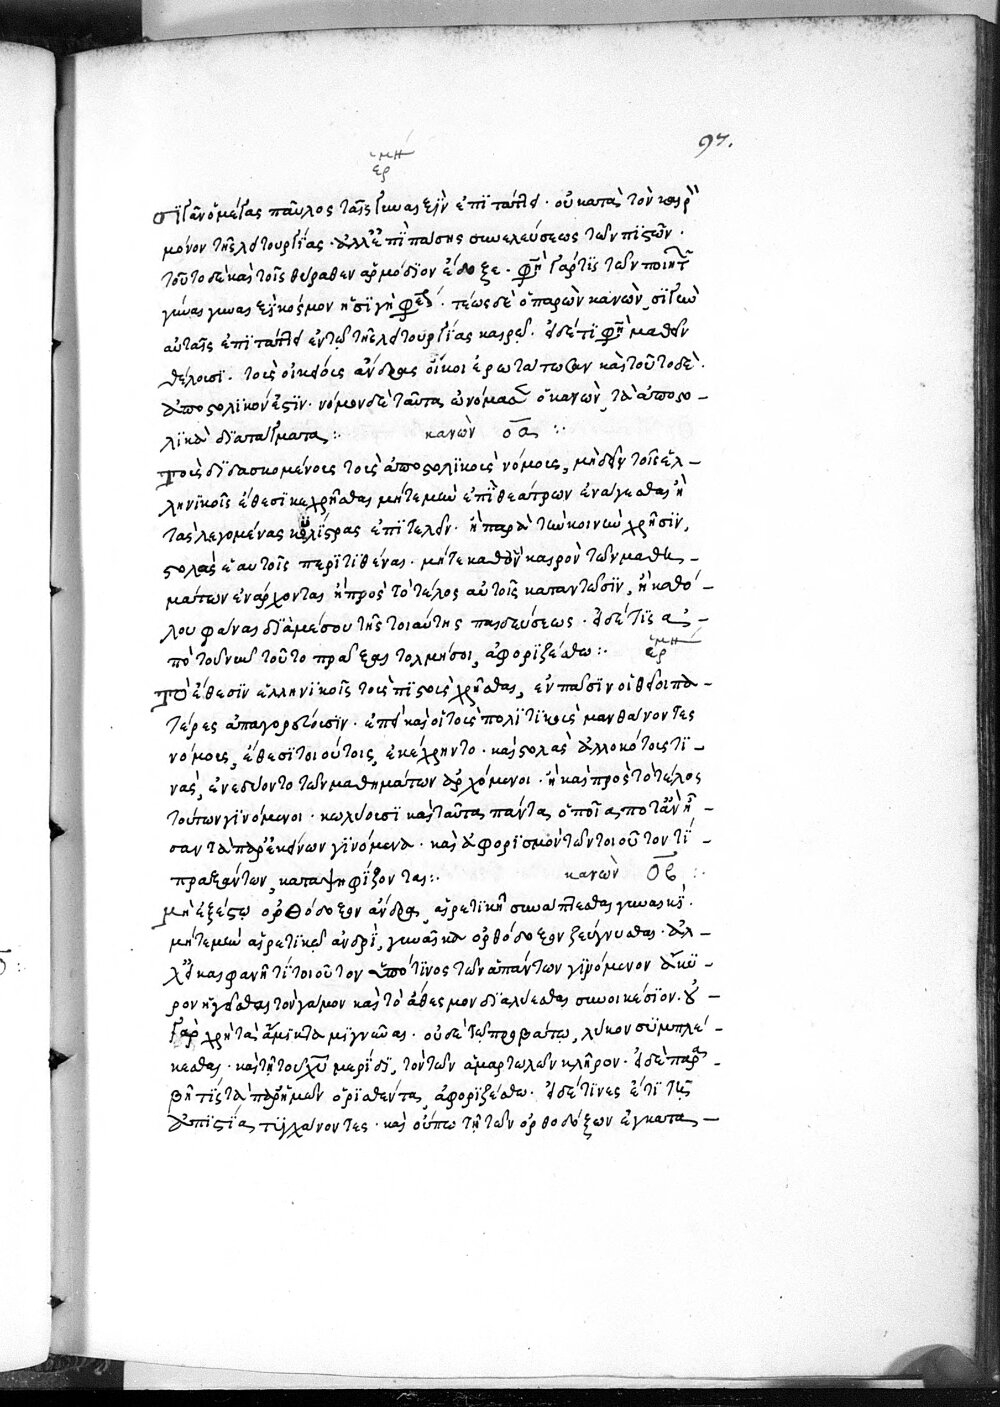 97.
ἑρμη
σιγᾶν ὁ μέγας παῦλος ταῖς γυναιξὶν ἐπιτάττει· οὐ κατὰ τὸν καιρὸν
μόνον τῆς λειτουργίας· ἀλλ' ἐπὶ πάσης συνελεύσεως τῶν πιστῶν·
τοῦτο δὲ καὶ τοῖς θύραθεν ἁρμόδιον ἔδοξε· φησὶ γάρ τις τῶν ποιητῶν
γύναι γυναιξὶ κόσμον ἡ σιγὴ φέρει· τέως δὲ ὁ παρὼν κανὼν, σιγὴν
αὐταῖς ἐπιτάττει ἐν τῷ τῆς λειτουργίας καιρῷ· εἰ δέ τι φησὶ μαθεῖν
θέλοισι· τοὺς οἰκείους ἄνδρας οἴκοι ἐρωτάτωσαν καὶ τοῦτο δὲ·
ἀποστολικόν ἐστιν· νόμον δὲ ταῦτα ὠνόμασεν ὁ κανὼν, τὰ ἀποστο-
λικὰ διατάγματα:· κανὼν οα :·
Τοὺς διδασκομένους τοὺς ἀποστολικοὺς νόμους, μὴ δεῖν τοῖς ἑλ-
ληνικοῖς ἔθεσι κεχρῆσθαι μήτε μὴν ἐπὶ θεάτρων ἀνάγεσθαι ἢ
τὰς λεγομένας κυλίστρας ἐπιτελεῖν· ἢ παρὰ τὴν κοινὴν χρῆσιν,
στολὰς ἑαυτοῖς περιτιθέναι· μήτε καθ' ὃν καιρὸν τῶν μαθη-
μάτων ἐνάρχονται ἢ πρὸς τὸ τέλος αὐτοῖς καταντῶσιν, ἢ καθό-
λου φάναι διὰ μέσου τῆς τοιαύτης παιδεύσεως· εἰ δέ τις ἀ-
πὸ τοῦ νῦν τοῦτο πρᾶξαι τολμήσοι, ἀφοριζέσθω:· ἑρμη
Τὸ ἔθεσιν ἑλληνικοῖς τοὺς πιστοὺς χρῆσθαι, ἐν πᾶσιν οἱ θεῖοι πα-
τέρες ἀπαγορεύουσιν· ἐπεὶ καὶ οἱ τοὺς πολιτικοὺς μανθάνοντες
νόμους, ἔθεσι τοιούτοις, ἐκέχρηντο· καὶ στολὰς ἀλλοκότους τι-
νὰς, ἐνεδύοντο τῶν μαθημάτων ἀρχόμενοι· ἢ καὶ πρὸς τὸ τέλος
τούτων γινόμενοι· κωλύουσι καὶ ταῦτα πάντα, ὁποῖά ποτ' ἂν ἦ-
σαν τὰ παρ' ἐκείνων γινόμενα· καὶ ἀφορισμὸν τῶν τοιοῦτόν τι
πραξάντων, καταψηφίζονται:· κανὼν οβ :·
Μὴ ἐξέστω ὀρθόδοξον ἄνδρα, αἱρετικῇ συνάπτεσθαι γυναικί·
μήτε μὴν αἱρετικῷ ἀνδρὶ, γυναῖκα ὀρθόδοξον ζεύγνυσθαι· ἀλ-
λ' εἰ καὶ φανῇ τι τοιοῦτον ὑπό τινος τῶν ἁπάντων γινόμενον ἄκυ-
ρον ἡγεῖσθαι τὸν γάμον καὶ τὸ ἄθεσμον διαλύεσθαι συνοικέσιον· οὐ
γὰρ χρὴ τὰ ἄμικτα μιγνῦναι· οὐδὲ τῷ προβάτῳ, λύκον συμπλέ-
κεσθαι· καὶ τῇ τοῦ χυ μερίδι, τὸν τῶν ἁμαρτωλῶν κλῆρον· εἰ δὲ παρα-
βῇ τις τὰ παρ' ἡμῶν ὁρισθέντα, ἀφοριζέσθω· εἰ δέ τινες ἔτι τῇ
ἀπιστίᾳ τυγχάνοντες· καὶ οὔπω τῇ τῶν ὀρθοδόξων ἐγκατα-